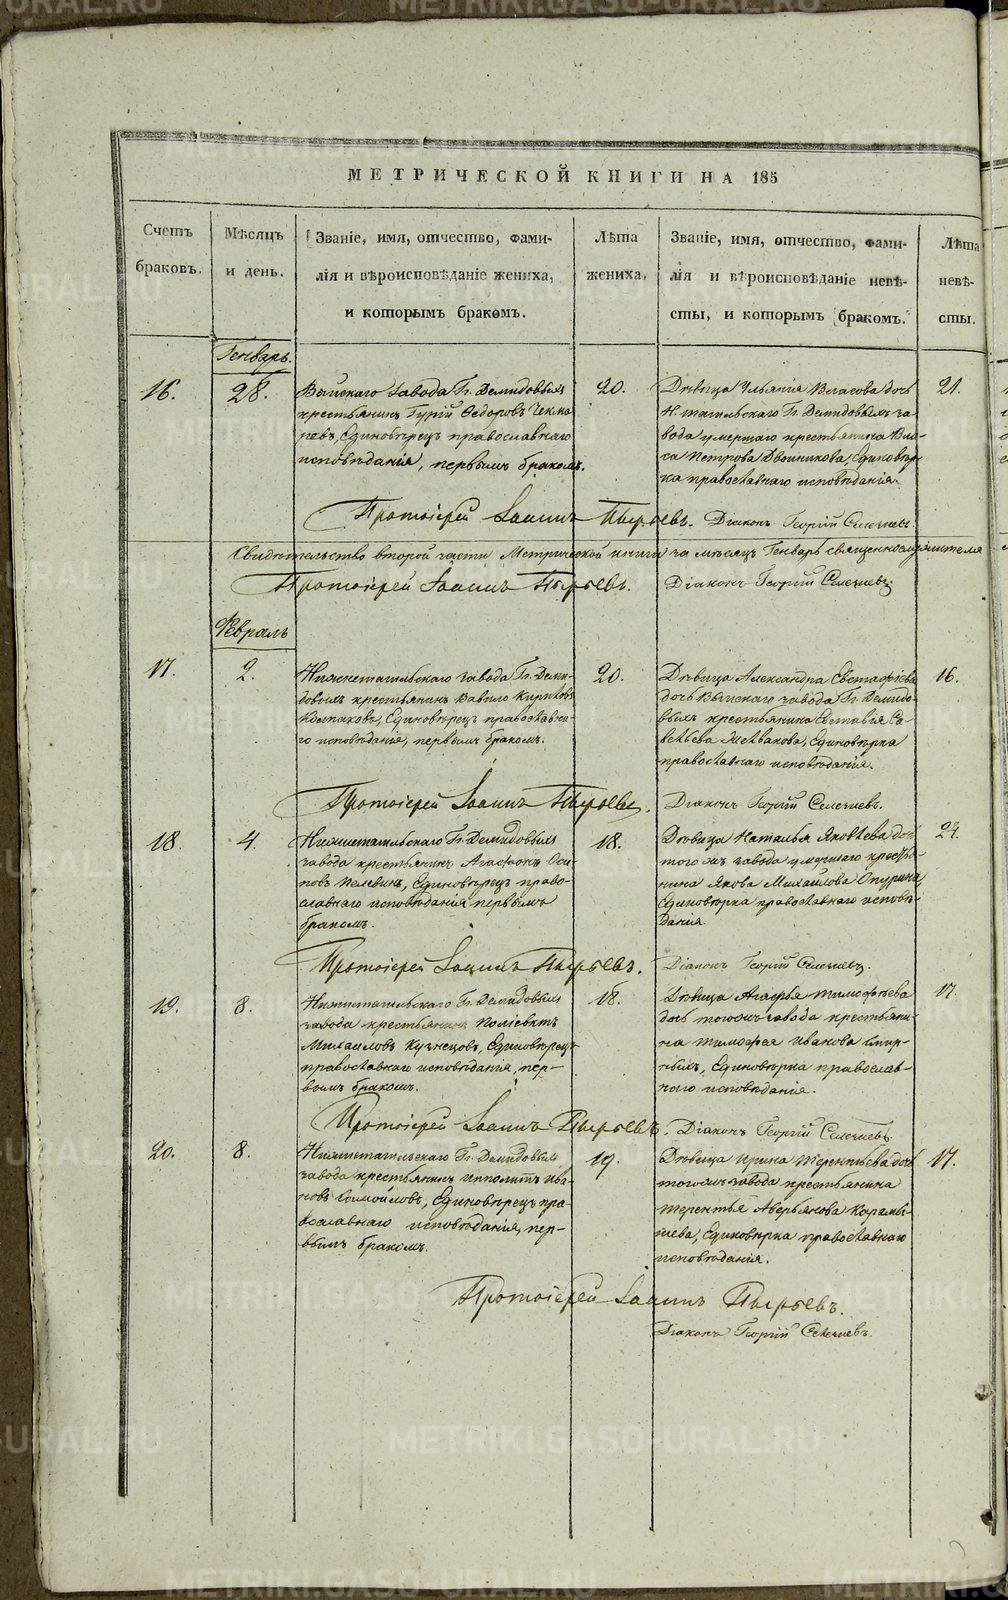 МЕТРИЧЕСКОЙ КНИГИ НА 185
Счетъ браковъ.
Мѣсяцъ и день.
Званіе, имя, отчество, фами-
лія и вѣроисповѣданіе жениха,
и которымъ бракомъ.
Лѣта жениха.
Званіе, имя, отчество, фами-
лія и вѣроисповѣданіе невѣ-
сты, и которымъ бракомъ.
Лѣта невѣ-
сты.
Генварь.
16.
28.
Выйскаго завода Гг. Демидовыхъ
крестьянинъ Гурій Ѳедоровъ
Единовѣрецъ православнаго
исповѣданія, первымъ бракомъ.
20.
Дѣвица Ульянія Власова дочь
Нтагильскаго Гг. Демидовыхъ за-
вода умершаго крестьянина Вла-
са Петрова Двойникова, Единовѣр-
ка православнаго исповѣданія.
21.
Протоіерей Іоаннъ Пырьевъ. Діаконъ Георгій Селечиевъ.
Свидѣтельство второй части Метрической книги за мѣсяцъ Генварь
Протоіерей Іоаннъ Пырьевъ. Діаконъ Георгій Селечиевъ.
Февраль
17.
2.
Нижнетагильскаго завода Гг. Деми-
довыхъ крестьянинъ Вавило Кириловъ
Колпаковъ, Единовѣрецъ православна-
го исповѣданія, первымъ бракомъ.
20.
Дѣвица Александра Евстафіева
дочь Выйскаго завода Гг. Демидо-
выхъ крестьянина Евстафія Са-
вельева Единовѣрка
православнаго исповѣданія.
16.
Протоіерей Іоаннъ Пырьевъ. Діаконъ Георгій Селечиевъ.
18.
4.
Нижнетагильскаго Гг. Демидовыхъ
завода крестьянинъ Агафонъ Оси-
повъ Единовѣрецъ право-
славнаго исповѣданія первымъ
бракомъ.
18.
Дѣвица Наталья Яковлева дочь
того жъ завода умершаго крестья-
нина Якова Михайлова Опурина,
Единовѣрка православнаго исповѣ-
данія.
Протоіерей Іоаннъ Пырьевъ. Діаконъ Георгій Селечиевъ.
19.
8.
Нижнетагильскаго Гг. Демидовыхъ
завода крестьянинъ Поліевктъ
Михаиловъ Кузнецовъ, Единовѣрецъ
православнаго исповѣданія, пер-
вымъ бракомъ.
18.
Дѣвица Агафья Тимофеева
дочь тогожъ завода крестьяни-
на Тимофея Иванова Смир-
ныхъ, Единовѣрка православ-
наго исповѣданія.
17.
Протоіерей Іоаннъ Пырьевъ. Діаконъ Георгій Селечиевъ.
20.
8.
Нижнетагильскаго Гг. Демидовыхъ
завода крестьянинъ Ипполитъ Ива-
новъ Самойловъ, Единовѣрецъ пра-
вославнаго исповѣданія, пер-
вымъ бракомъ.
19.
Дѣвица Ирина Терентьева дочь
тогожъ завода крестьянина
Терентья Аверьянова Карамы-
шева, Единовѣрка православнаго
исповѣданія.
17.
Протоіерей Іоаннъ Пырьевъ.
Діаконъ Георгій Селечиевъ.
METRIKI.GASO-URAL.RU